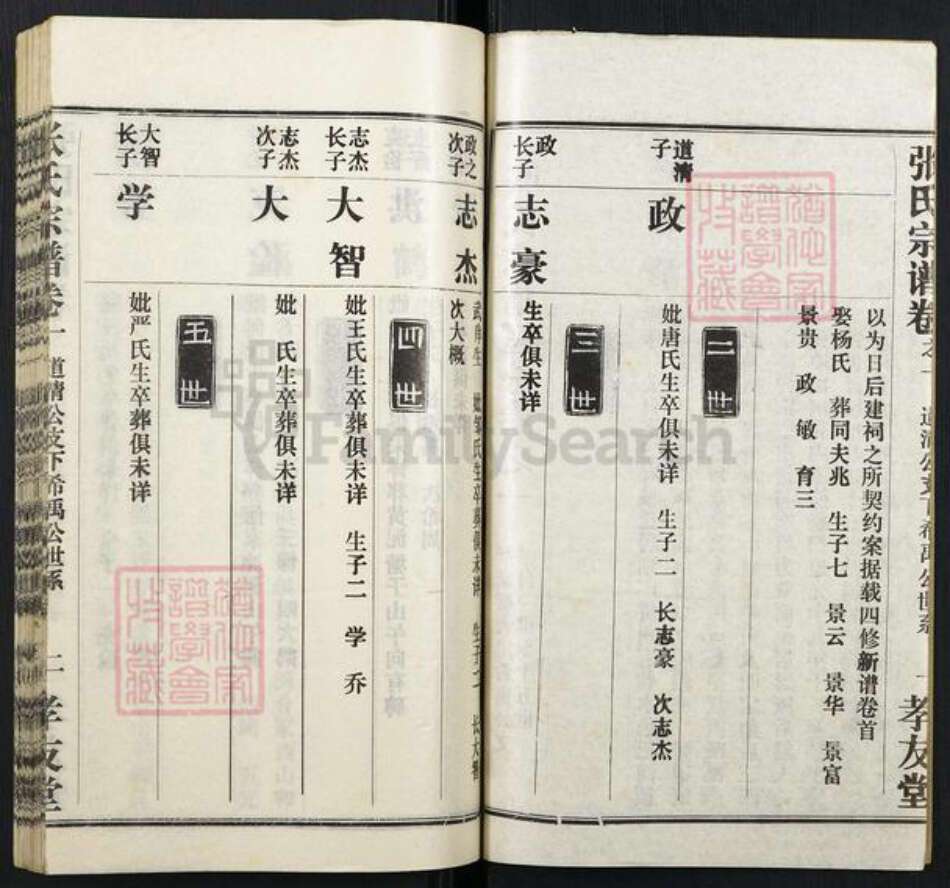 张氏宗谱卷之一 道清公支下希禹公世系 一 孝友堂
以为日后建祠之所契约案据载四修新谱卷首
娶杨氏 葬同夫兆 生子七 景云 景华 景富
景贵 政 敏 育三
二世
道清子
政
妣唐氏生卒俱未详 生子二 长志豪 次志杰
三世
政长子
志豪
生卒俱未详
政之次子
志杰
氏生卒葬俱未详 生子二 长大智
次大概
四世
志杰长子
大智
妣王氏生卒葬俱未详 生子二 学 乔
志杰次子
大
妣 氏生卒葬俱未详
五世
大智长子
学
妣严氏生卒葬俱未详
张氏宗谱卷一 道清公支下希禹公世系 二 孝友堂
FamilySearch